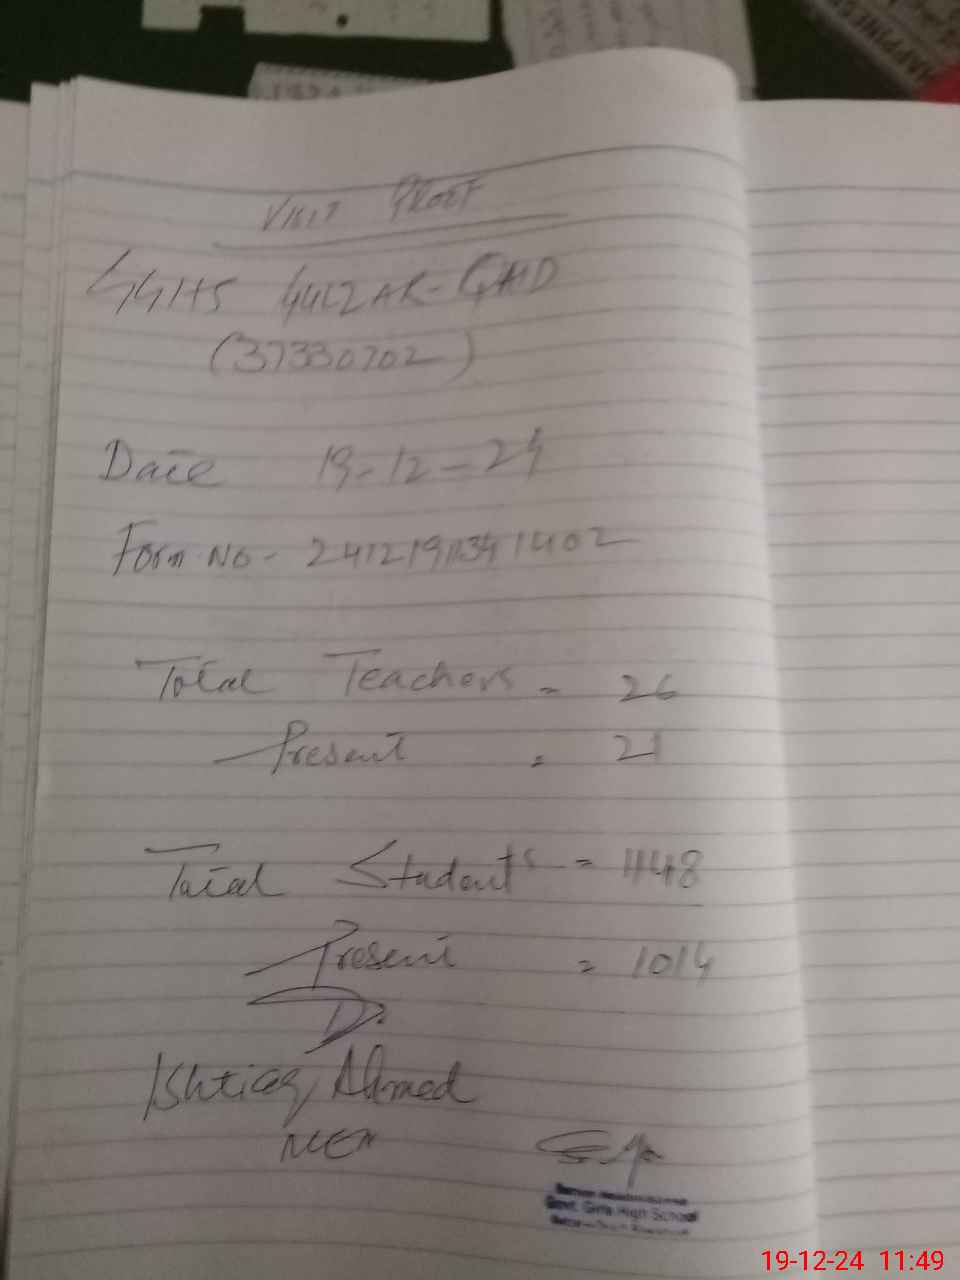 VISIT PROOF
GGHS GULZAR-QAID
(37330702)
Date 19-12-24
Form No - 2412191134 1402
Total Teachers = 26
Present = 21
Total Students = 1148
Present = 1014
Ishtiaq Ahmed
MEA
Govt. Girls High School
19-12-24 11:49